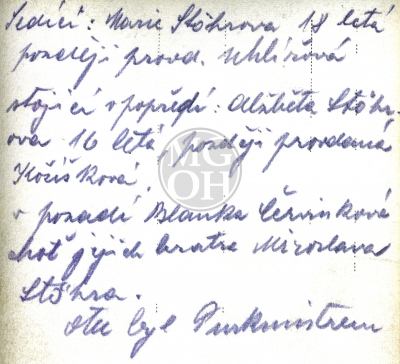 Sedící: Marie Stöhrova 18 letá
později provd. Uhlířová
stojící v popředí: Alžběta Stöhr-
ova 16 letá, později provdaná
Kožíšková
v pozadí Blanka Červinková
choť jejich bratra Miroslava
Stöhra.
otec byl Purkmistrem
MG
OH